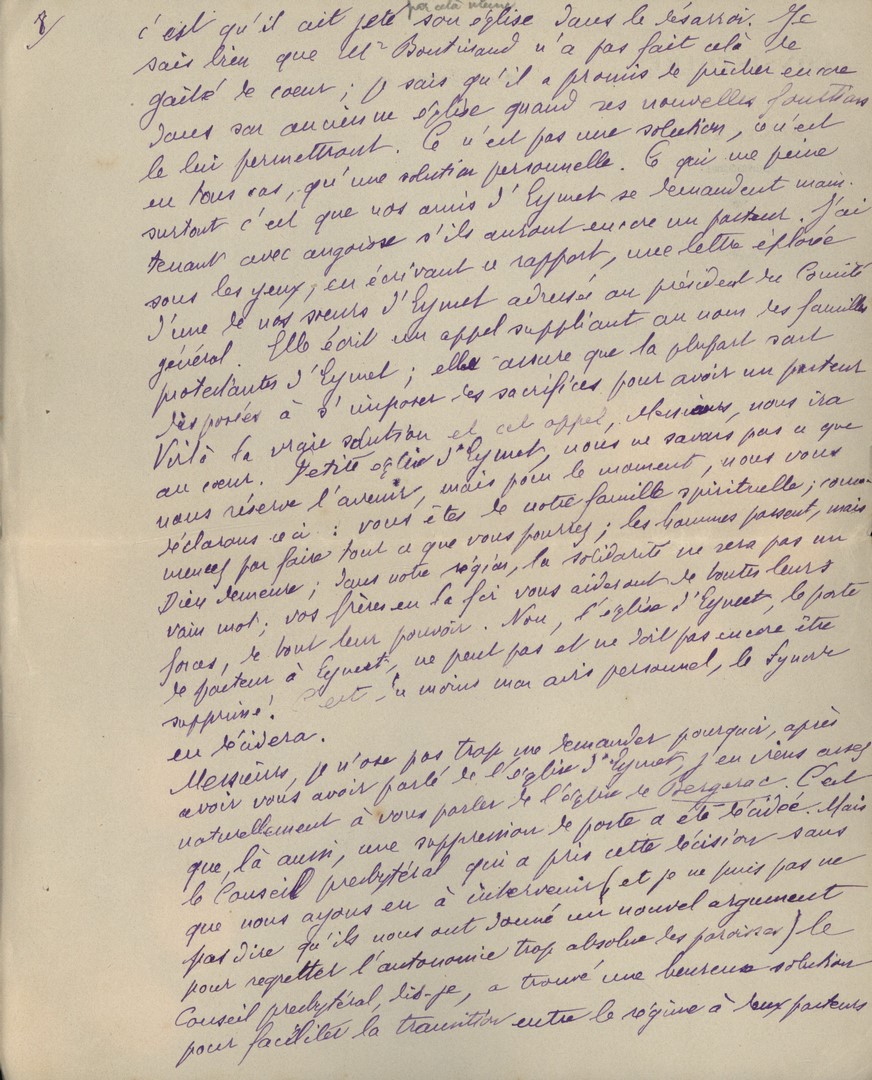 8/
par cela même
c'est qu'il ait jeté son église dans le désarroi. Je
sais bien que Mr n'a pas fait cela de
gaîté de coeur ; je sais qu'il a promis de prêcher encore
dans son ancienne église quand ses nouvelles fonctions
le lui permettront. Ce n'est pas une solution, ce n'est
en tous cas, qu'une solution personnelle. Ce qui me peine
surtout c'est que nos amis d'Eymet se demandent main-
tenant avec angoisse s'ils auront encore un pasteur. J'ai
sous les yeux, en écrivant ce rapport, une lettre éplorée
d'une de nos soeurs d'Eymet adressée au président du Comité
général. Elle écrit un appel suppliant au nom des familles
protestantes d'Eymet ; elle assure que la plupart sont
disposées à s'imposer des sacrifices pour avoir un pasteur
Voilà la vraie solution et cet appel, Messieurs, nous ira
au coeur. Petite église d'Eymet, nous ne savons pas ce que
nous réserve l'avenir, mais pour le moment, nous vous
déclarons ceci : vous êtes de notre famille spirituelle ; com-
mencez par faire tout ce que vous pourrez ; les hommes passent, mais
Dieu demeure ; dans votre région, la solidarité ne sera pas un
vain mot ; vos frères en la foi vous aideront de toutes leurs
forces, de tout leur pouvoir. Non, l'église d'Eymet, le poste
de pasteur à Eymet, ne peut pas et ne doit pas encore être
supprimé ! C'est du moins mon avis personnel, le Synode
en décidera.
Messieurs, je n'ose pas trop me demander pourquoi, après
avoir vous avoir parlé de l'église d'Eymet, j'en viens assez
naturellement à vous parler de l'église de Bergerac. C'est
que, là aussi, une suppression de poste a été décidée. Mais
le Conseil presbytéral qui a pris cette décision sans
que nous ayons eu à intervenir (et je ne puis pas ne
pas dire qu'ils nous ont donné un nouvel argument
pour regretter l'autonomie trop absolue des paroisses) le
Conseil presbytéral, dis-je, a trouvé une heureuse solution
pour faciliter la transition entre le régime à deux pasteurs